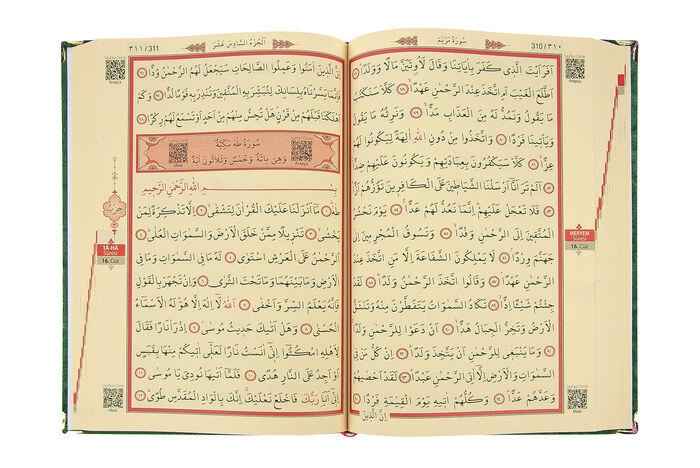 310/٣١٠
سُورَةُ مَرْيَمَ
اَفَرَاَيْتَ الَّذِي كَفَرَ بِاٰيَاتِنَا وَقَالَ لَاُوتَيَنَّ مَالًا وَوَلَدًا ﴿٧٧﴾
اَطَّلَعَ الْغَيْبَ اَمِ اتَّخَذَ عِنْدَ الرَّحْمٰنِ عَهْدًا ﴿٧٨﴾ كَلَّا سَنَكْتُبُ
مَا يَقُولُ وَنَمُدُّ لَهُ مِنَ الْعَذَابِ مَدًّا ﴿٧٩﴾ وَنَرِثُهُ مَا يَقُولُ
وَيَأْتِينَا فَرْدًا ﴿٨٠﴾ وَاتَّخَذُوا مِنْ دُونِ اللّٰهِ اٰلِهَةً لِيَكُونُوا لَهُمْ
عِزًّا ﴿٨١﴾ كَلَّا سَيَكْفُرُونَ بِعِبَادَتِهِمْ وَيَكُونُونَ عَلَيْهِمْ ضِدًّا
﴿٨٢﴾ اَلَمْ تَرَ اَنَّا اَرْسَلْنَا الشَّيَاطِينَ عَلَى الْكَافِرِينَ تَؤُزُّهُمْ اَزًّا
﴿٨٣﴾ فَلَا تَعْجَلْ عَلَيْهِمْ اِنَّمَا نَعُدُّ لَهُمْ عَدًّا ﴿٨٤﴾ يَوْمَ نَحْشُرُ
الْمُتَّقِينَ اِلَى الرَّحْمٰنِ وَفْدًا ﴿٨٥﴾ وَنَسُوقُ الْمُجْرِمِينَ اِلٰى
جَهَنَّمَ وِرْدًا ﴿٨٦﴾ لَا يَمْلِكُونَ الشَّفَاعَةَ اِلَّا مَنِ اتَّخَذَ عِنْدَ
الرَّحْمٰنِ عَهْدًا ﴿٨٧﴾ وَقَالُوا اتَّخَذَ الرَّحْمٰنُ وَلَدًا ﴿٨٨﴾ لَقَدْ
جِئْتُمْ شَيْئًا اِدًّا ﴿٨٩﴾ تَكَادُ السَّمٰوَاتُ يَتَفَطَّرْنَ مِنْهُ وَتَنْشَقُّ
الْاَرْضُ وَتَخِرُّ الْجِبَالُ هَدًّا ﴿٩٠﴾ اَنْ دَعَوْا لِلرَّحْمٰنِ وَلَدًا
﴿٩١﴾ وَمَا يَنْبَغِي لِلرَّحْمٰنِ اَنْ يَتَّخِذَ وَلَدًا ﴿٩٢﴾ اِنْ كُلُّ مَنْ فِي
السَّمٰوَاتِ وَالْاَرْضِ اِلَّا اٰتِي الرَّحْمٰنِ عَبْدًا ﴿٩٣﴾ لَقَدْ اَحْصٰيهُمْ
وَعَدَّهُمْ عَدًّا ﴿٩٤﴾ وَكُلُّهُمْ اٰتِيهِ يَوْمَ الْقِيٰمَةِ فَرْدًا ﴿٩٥﴾
اِنَّ الَّذِينَ
Arapça
MERYEM
Sûresi
16. Cüz
Meal
اَلْجُزْءُ السَّادِسَ عَشَرَ
٣١١/311
اِنَّ الَّذِينَ اٰمَنُوا وَعَمِلُوا الصَّالِحَاتِ سَيَجْعَلُ لَهُمُ الرَّحْمٰنُ وُدًّا ﴿٩٦﴾
فَاِنَّمَا يَسَّرْنَاهُ بِلِسَانِكَ لِتُبَشِّرَ بِهِ الْمُتَّقِينَ وَتُنْذِرَ بِهِ قَوْمًا لُدًّا ﴿٩٧﴾ وَكَمْ
اَهْلَكْنَا قَبْلَهُمْ مِنْ قَرْنٍ هَلْ تُحِسُّ مِنْهُمْ مِنْ اَحَدٍ اَوْ تَسْمَعُ لَهُمْ رِكْزًا ﴿٩٨﴾
سُورَةُ طٰهٰ مَكِّيَّةٌ
وَهِيَ مِائَةٌ وَخَمْسٌ وَثَلَاثُونَ اٰيَةً
بِسْمِ اللّٰهِ الرَّحْمٰنِ الرَّحِيمِ
طٰهٰ ﴿١﴾ مَا اَنْزَلْنَا عَلَيْكَ الْقُرْاٰنَ لِتَشْقٰى ﴿٢﴾ اِلَّا تَذْكِرَةً لِمَنْ
يَخْشٰى ﴿٣﴾ تَنْزِيلًا مِمَّنْ خَلَقَ الْاَرْضَ وَالسَّمٰوَاتِ الْعُلٰى ﴿٤﴾
اَلرَّحْمٰنُ عَلَى الْعَرْشِ اسْتَوٰى ﴿٥﴾ لَهُ مَا فِي السَّمٰوَاتِ وَمَا فِي
الْاَرْضِ وَمَا بَيْنَهُمَا وَمَا تَحْتَ الثَّرٰى ﴿٦﴾ وَاِنْ تَجْهَرْ بِالْقَوْلِ
فَاِنَّهُ يَعْلَمُ السِّرَّ وَاَخْفٰى ﴿٧﴾ اَللّٰهُ لَا اِلٰهَ اِلَّا هُوَ لَهُ الْاَسْمَاءُ
الْحُسْنٰى ﴿٨﴾ وَهَلْ اَتٰيكَ حَدِيثُ مُوسٰى ﴿٩﴾ اِذْ رَاٰ نَارًا فَقَالَ
لِاَهْلِهِ امْكُثُوا اِنِّي اٰنَسْتُ نَارًا لَعَلِّي اٰتِيكُمْ مِنْهَا بِقَبَسٍ
اَوْ اَجِدُ عَلَى النَّارِ هُدًى ﴿١٠﴾ فَلَمَّا اَتٰيهَا نُودِيَ يَا مُوسٰى ﴿١١﴾
اِنِّي اَنَا رَبُّكَ فَاخْلَعْ نَعْلَيْكَ اِنَّكَ بِالْوَادِ الْمُقَدَّسِ طُوًى ﴿١٢﴾
Arapça
حزب
TÂ-HÂ
Sûresi
16. Cüz
Meal